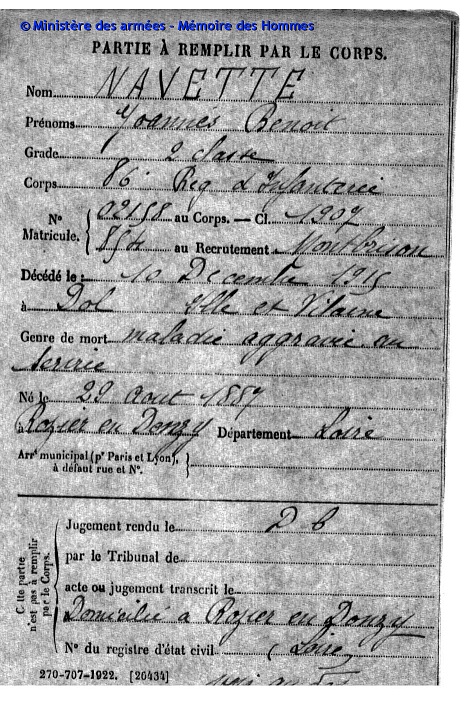 © Ministère des armées - Mémoire des Hommes
PARTIE À REMPLIR PAR LE CORPS.
Nom NAVETTE
Prénoms Joannès Benoit
Grade 2 classe
Corps 86 Reg d'Infanterie
N° Matricule. 02158 au Corps. — Cl. 1907
854 au Recrutement Montbrison
Décédé le : 10 Décembre 1915
à Dol Ille et Vilaine
Genre de mort maladie aggravée au
service
Né le 29 Aout 1887
à Rozier en Donzy Département Loire
Arrt municipal (pr Paris et Lyon),
à défaut rue et N°.
Cette partie n'est pas à remplir par le Corps.
Jugement rendu le D b
par le Tribunal de
acte ou jugement transcrit le
Domicilié à Rozier en Donzy
N° du registre d'état civil (Loire)
270-707-1922. [26434]